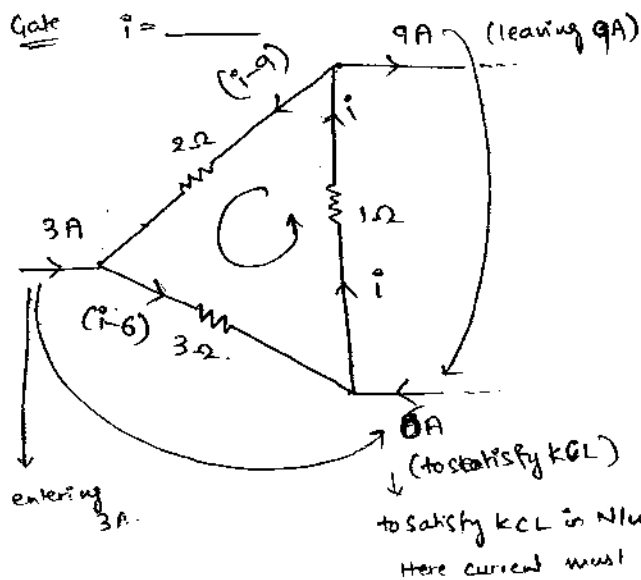 Gate i = ____
9A (leaving 9A)
(i-9)
i
2Ω
1Ω
3A
i
(i-6)
3Ω.
6A
(to satisfy KCL)
entering
3A.
to satisfy KCL in N/w
Here current must